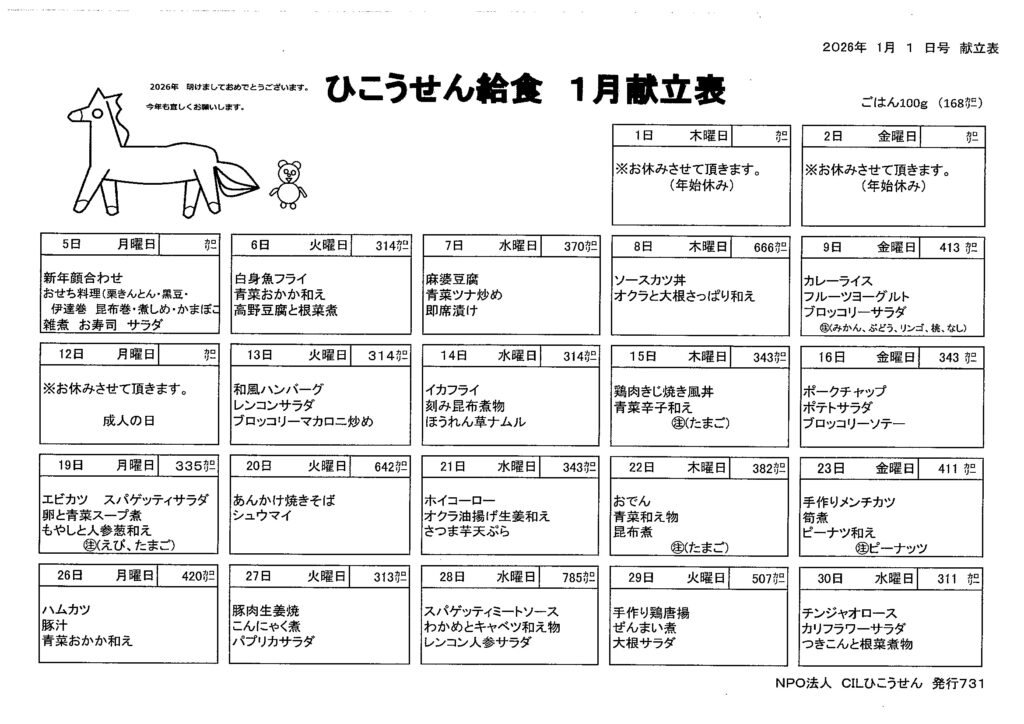 2026年 1月 1 日号 献立表
2026年 明けましておめでとうございます。
今年も宜しくお願いします。
ひこうせん給食 1月献立表
ごはん100g (168カロリー)
1日 木曜日 カロリー
※お休みさせて頂きます。
(年始休み)
2日 金曜日 カロリー
※お休みさせて頂きます。
(年始休み)
5日 月曜日 カロリー
新年顔合わせ
おせち料理(栗きんとん・黒豆・
伊達巻 昆布巻・煮しめ・かまぼこ
雑煮 お寿司 サラダ
6日 火曜日 314カロリー
白身魚フライ
青菜おかか和え
高野豆腐と根菜煮
7日 水曜日 370カロリー
麻婆豆腐
青菜ツナ炒め
即席漬け
8日 木曜日 666カロリー
ソースカツ丼
オクラと大根さっぱり和え
9日 金曜日 413カロリー
カレーライス
フルーツヨーグルト
ブロッコリーサラダ
㊟(みかん、ぶどう、リンゴ、桃、なし)
12日 月曜日 カロリー
※お休みさせて頂きます。
成人の日
13日 火曜日 314カロリー
和風ハンバーグ
レンコンサラダ
ブロッコリーマカロニ炒め
14日 水曜日 314カロリー
イカフライ
刻み昆布煮物
ほうれん草ナムル
15日 木曜日 343カロリー
鶏肉きじ焼き風丼
青菜辛子和え
㊟(たまご)
16日 金曜日 343カロリー
ポークチャップ
ポテトサラダ
ブロッコリーソテー
19日 月曜日 335カロリー
エビカツ スパゲッティサラダ
卵と青菜スープ煮
もやしと人参葱和え
㊟(えび、たまご)
20日 火曜日 642カロリー
あんかけ焼きそば
シュウマイ
21日 水曜日 343カロリー
ホイコーロー
オクラ油揚げ生姜和え
さつま芋天ぷら
22日 木曜日 382カロリー
おでん
青菜和え物
昆布煮
㊟(たまご)
23日 金曜日 411カロリー
手作りメンチカツ
筍煮
ピーナツ和え
㊟ピーナッツ
26日 月曜日 420カロリー
ハムカツ
豚汁
青菜おかか和え
27日 火曜日 313カロリー
豚肉生姜焼
こんにゃく煮
パプリカサラダ
28日 水曜日 785カロリー
スパゲッティミートソース
わかめとキャベツ和え物
レンコン人参サラダ
29日 火曜日 507カロリー
手作り鶏唐揚
ぜんまい煮
大根サラダ
30日 水曜日 311カロリー
チンジャオロース
カリフラワーサラダ
つきこんと根菜煮物
NPO法人 CILひこうせん 発行731